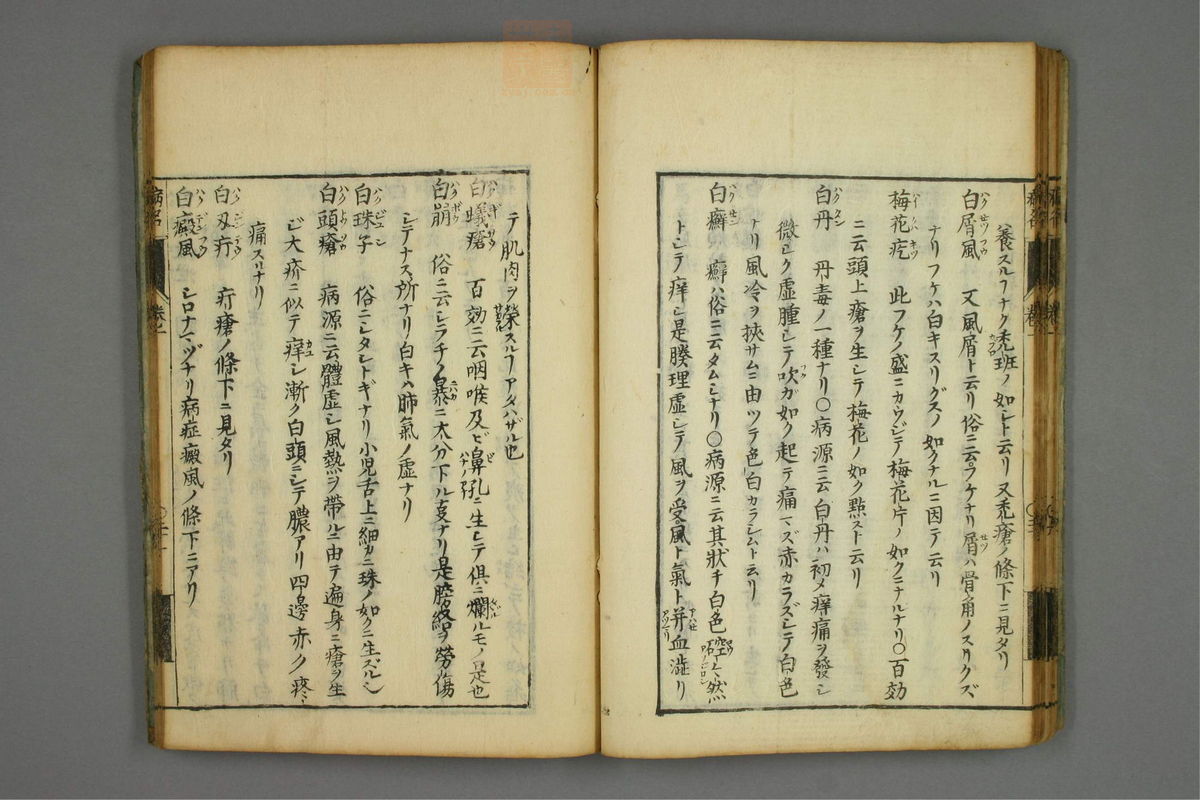 養スルフナク禿班ノ如シト云リ又禿瘡ノ條下ニ見タリ
白屑風 又風屑ト云リ俗ニ云フケナリ屑ハ骨角ノスリクズ
ナリフケハ白キスリグスノ如クナルニ因テ云リ
梅花疙 此フケノ盛ニカウジテ梅花片ノ如クニナルナリ〇百効
ニ云頭上瘡ヲ生シテ梅花ノ如ク點スト云リ
白丹 丹毒ノ一種ナリ〇病源ニ云白丹ハ初メ痒痛ヲ發シ
微シク虚腫シテ吹ガ如ク起テ痛マズ赤カラズシテ白色
ナリ風冷ヲ挾サムニ由ツテ色白カラシムト云リ
白癬 癬ハ俗ニ云タムシナリ〇病源ニ云其狀チ白色 然
トシテ痒シ是腠理虚シテ風ヲ受風ト氣ト并血澁リ
テ肌肉ヲ榮スルフアタハザル也
白蟻瘡 百効ニ云咽喉及ビ鼻孔ニ生シテ倶ニ爛ルモノ是也
白崩 俗ニ云シラチノ暴ニ大分下ル
シテナス所ナリ白キハ肺氣ノ虚ナリ
白珠子 俗ニシタトギナリ小児舌上ニ細カニ珠ノ如クニ生ズルシ
白頭瘡 病源ニ云體虚シ風熱ヲ帶ルニ由テ遍身ニ瘡ヲ生
ジ大疥ニ似テ痒シ漸ク白頭ニシテ膿アリ四邊赤ク疼
痛スリナリ
白刄疔 疔瘡ノ條下ニ見タリ
白癜風 シロナマヅナリ病症癜風ノ條下ニアリ
病名
卷之一